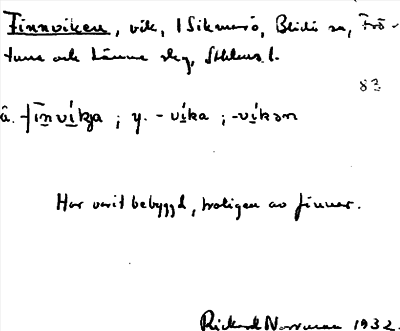 Finnviken, vik, i Sikmarö, Blidö sn, Frö-
tuna och Länna skg, Sthlms l.
83
å. fi̱nví̱kja ; y. -ví̱ka ; -ví̱kən
Har varit bebyggd, troligen av finnar.
Rickard Norrman 1932.